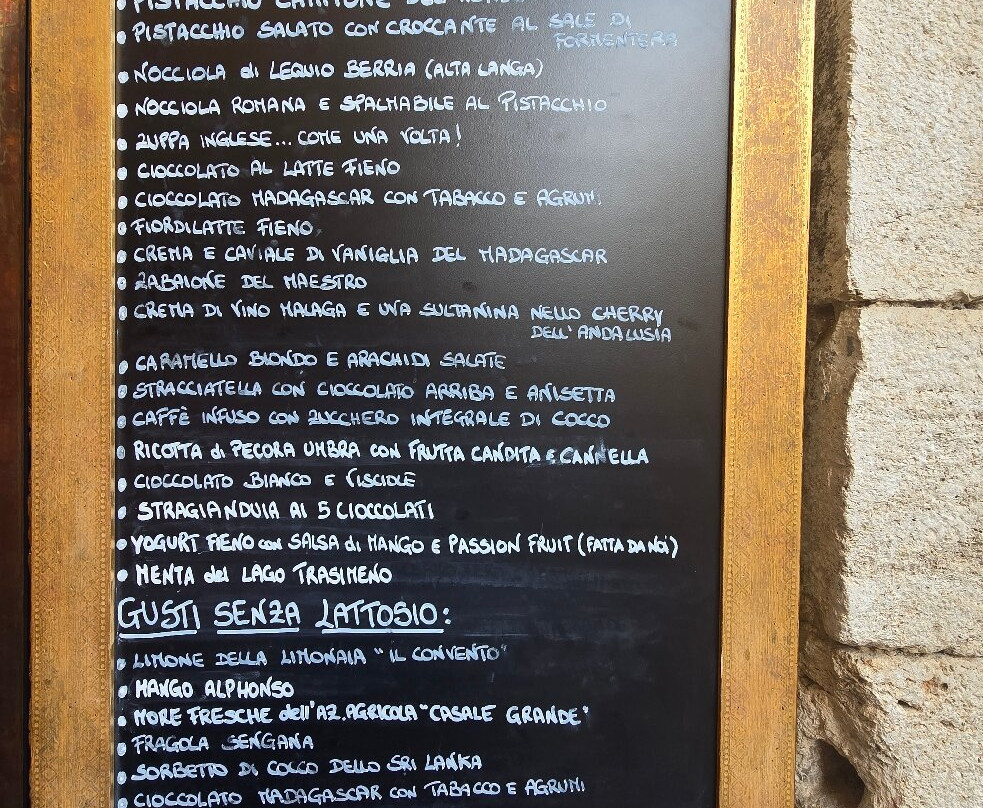 • PISTACCHIO
• PISTACCHIO SALATO CON CROCCANTE AL SALE DI
FORMENTERA
• NOCCIOLA di LEQUIO BERRIA (ALTA LANGA)
• NOCCIOLA ROMANA E SPALMABILE AL PISTACCHIO
• ZUPPA INGLESE... COME UNA VOLTA!
• CIOCCOLATO AL LATTE FIENO
• CIOCCOLATO MADAGASCAR CON TABACCO E AGRUMI
• FIORDILATTE FIENO
• CREMA E CAVIALE DI VANIGLIA DEL MADAGASCAR
• ZABAIONE DEL MAESTRO
• CREMA DI VINO MALAGA E UVA SULTANINA NELLO CHERRY
DELL'ANDALUSIA
• CARAMELLO BIONDO E ARACHIDI SALATE
• STRACCIATELLA CON CIOCCOLATO ARRIBA E ANISETTA
• CAFFÈ INFUSO CON ZUCCHERO INTEGRALE DI COCCO
• RICOTTA di PECORA UMBRA CON FRUTTA CANDITA E CANNELLA
• CIOCCOLATO BIANCO E VISCIOLE
• STRAGIANDUIA AI 5 CIOCCOLATI
• YOGURT FIENO con SALSA di MANGO E PASSION FRUIT (FATTA DA NOI)
• MENTA del LAGO TRASIMENO
GUSTI SENZA LATTOSIO:
• LIMONE DELLA LIMONAIA "IL CONVENTO"
• MANGO ALPHONSO
• MORE FRESCHE dell'AZ. AGRICOLA "CASALE GRANDE"
• FRAGOLA SENGANA
• SORBETTO DI COCCO DELLO SRI LANKA
• CIOCCOLATO MADAGASCAR CON TABACCO E AGRUMI